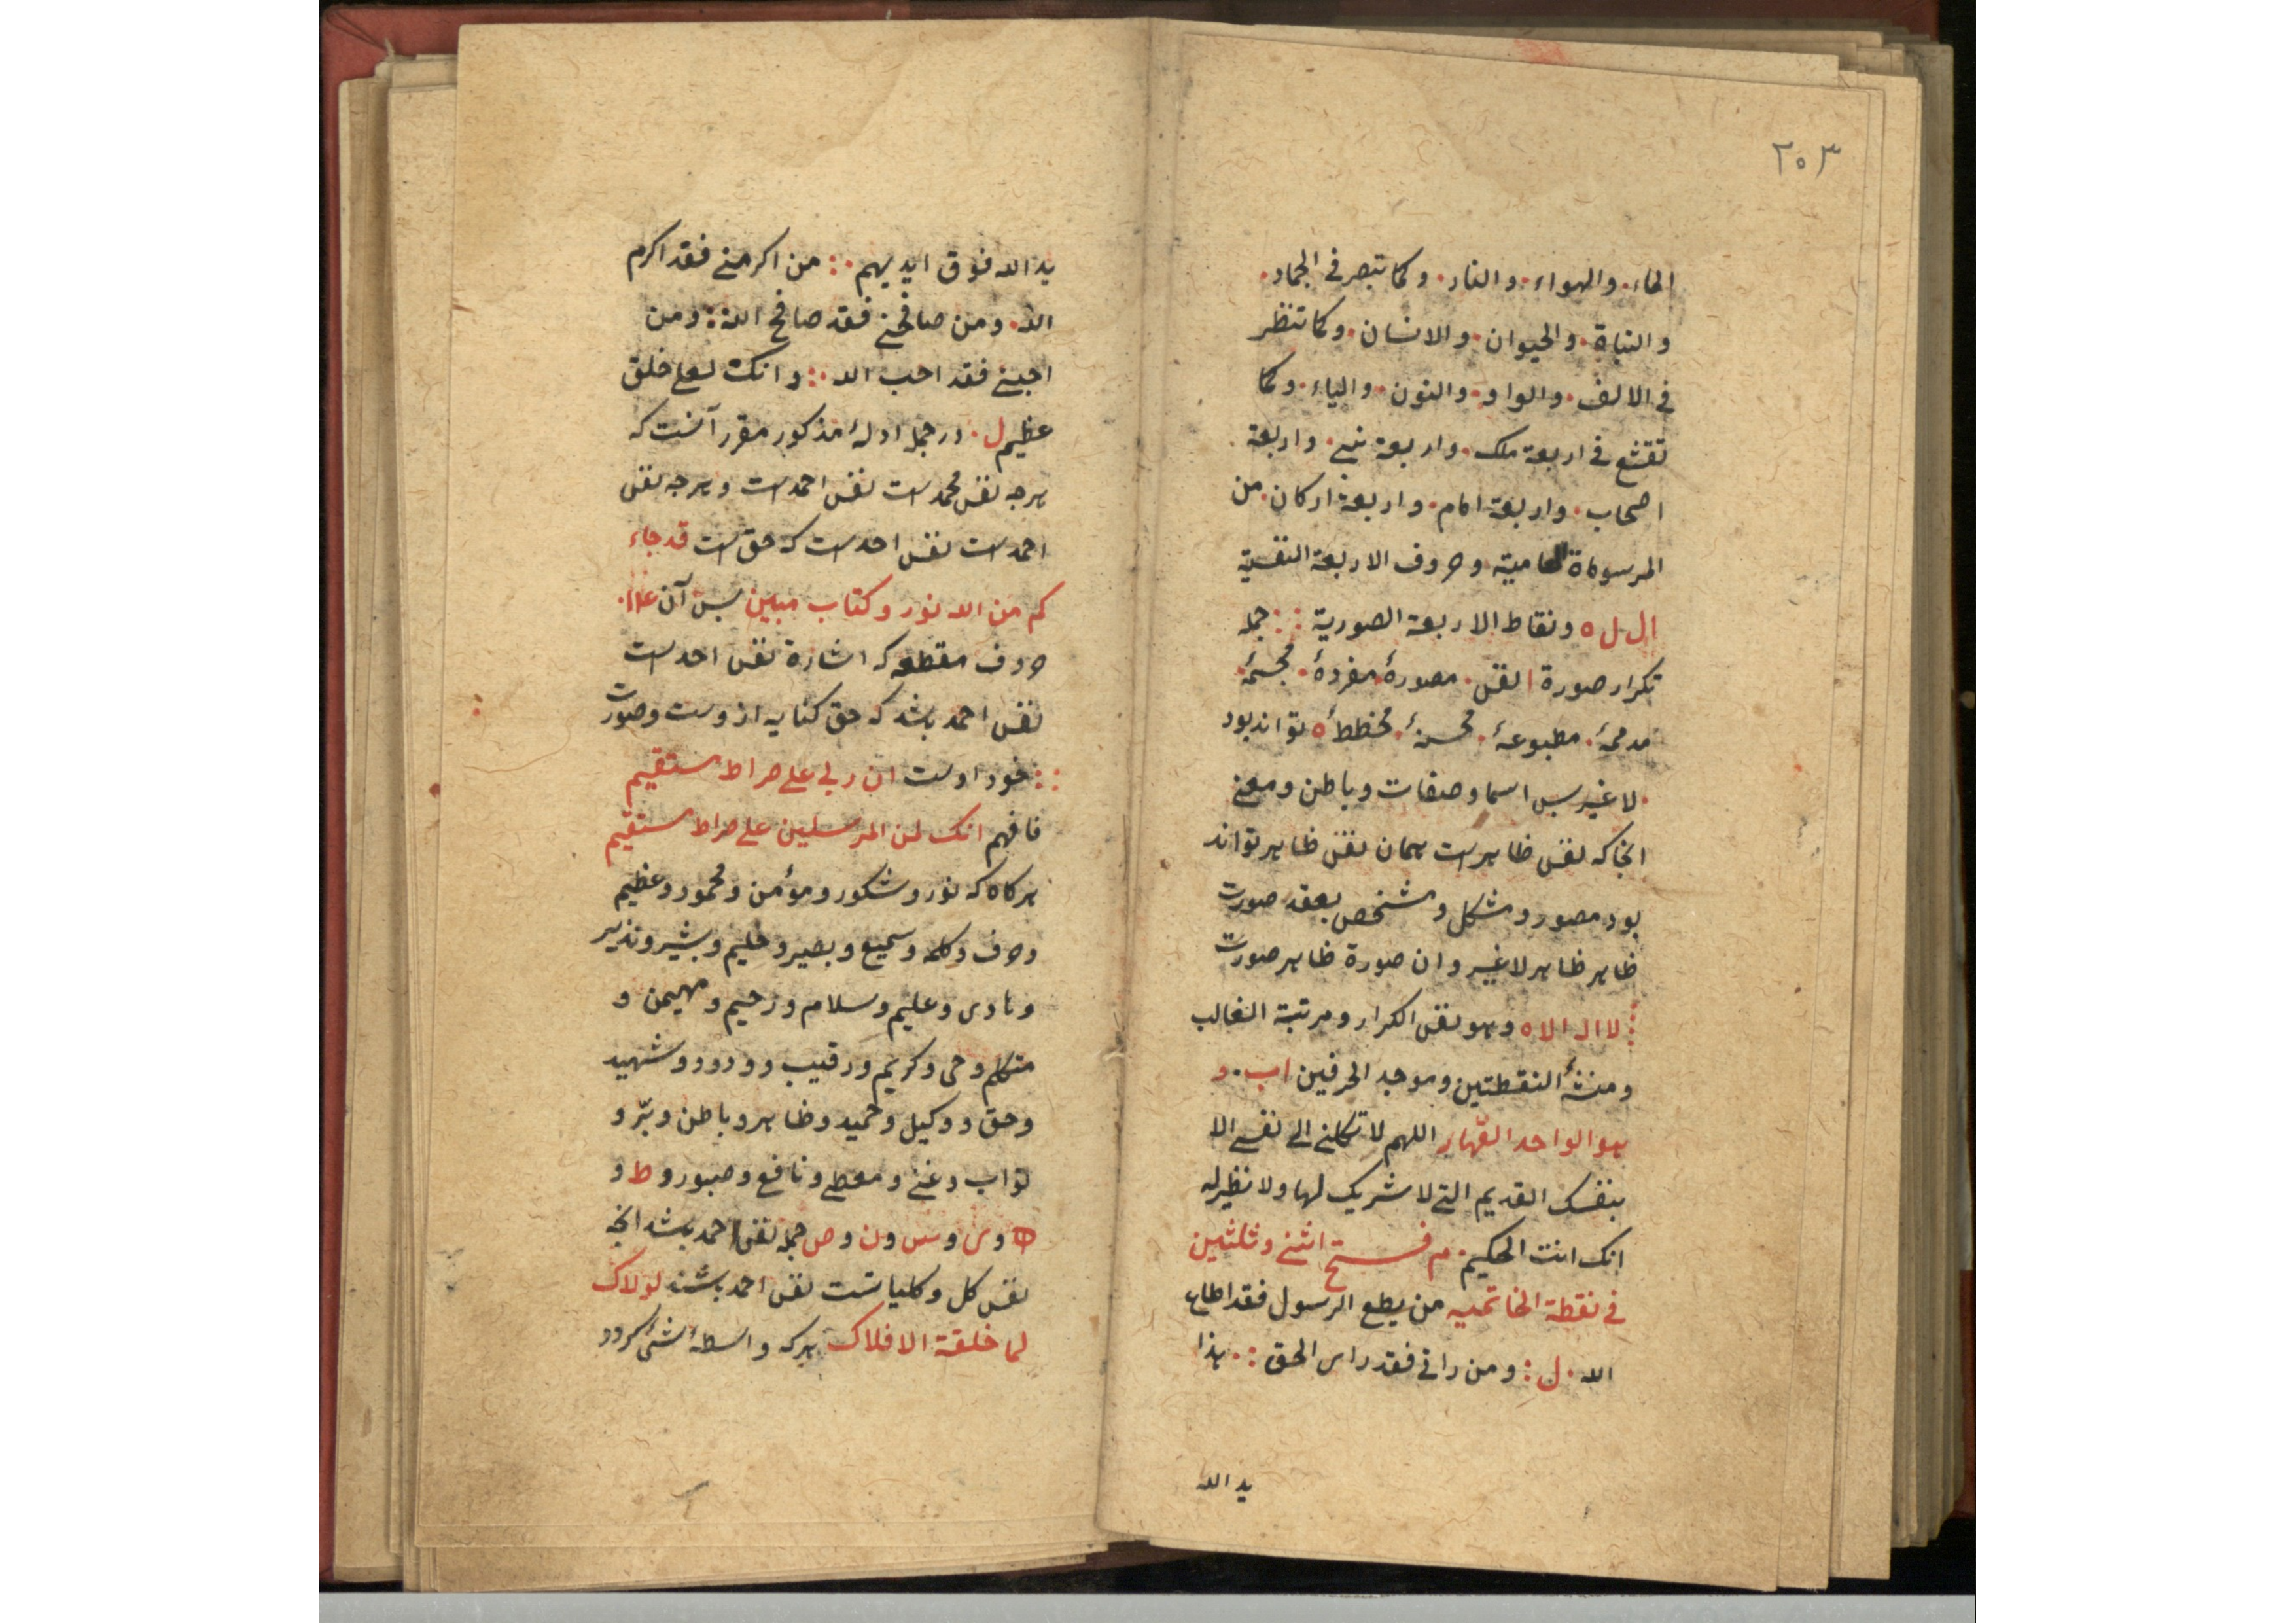 ۲۰۳
الماء۰ والهواء۰ والنار۰ وكما تبصر فى الجماد۰
والنباة۰ والحيوان۰ والانسان۰ وكما تنظر
فى الالف۰ والواو۰ والنون۰ والياء۰ وكما
تقشع فى اربعة ملك۰ واربعة نبى۰ واربعة
اصحاب۰ واربعة امام۰ واربعة اركان۰ من
المرسوماة وحروف الاربعة النقسية
ال ل ه ونقاط الاربعة الصورية :: جمله
تكرار صورة ا نفس۰ مصورهٔ مفردهٔ۰ مجسمهٔ۰
مدمجهٔ۰ مطبوعهٔ۰ محسنهٔ۰ مخططهٔ ه تواند بود
۰لا غير پس اسما وصفات وباطن ومعنى
انجا كه نفس ظاهرست همان نفس ظاهر تواند
بود مصور ومشكل ومشخص بعقد صورت
ظاهر ظاهر لاغير وان صورة ظاهر صورت
لا اله الا ه وهو نفس الكرار ومرتبة الغالب
ومنشأ النقطتين وموجد الحرفين اب۰ و
هو الواحد القهار اللهم لا تكلنى الى نفسى الا
بنفسك القديم التى لا شريك لها ولا نظير له
انك انت الحكيم۰ م فتح اثنى وثلثين
فى نقطة الخاتميه من يطع الرسول فقد اطاع
الله۰ ل: ومن رانى فقد راى الحق :۰ هذا
يد الله
يد الله فوق ايديهم۰: من اكرمنى فقد اكرم
الله۰ ومن صافحنى فقد صافح الله: ومن
احبنى فقد احب الله۰: وانك لعلى خلق
عظيم ل۰ در جمله ادلهٔ مذكور مقرر آنست كه
هرچه نفس محمدست نفس احمدست وهرچه نفس
احمدست نفس احدست كه حق است قد جاء
كم من الله نور وكتاب مبين پس آن
حروف مقطعه كه اشارة نفس احدست
نفس احمد باشد كه حق كنايه ازوست وصورت
:: خود اوست ان ربى على صراط مستقيم
فافهم انك لمن المرسلين على صراط مستقيم
هركاه كه نور وشكور ومؤمن ومحمود وعظيم
وحرف وكلمه وسميع وبصير وحليم وبشير ونذير
وهادى وعليم وسلام ورحيم ومهيمن و
متكلم وحى وكريم ورقيب وودود وشهيد
وحق ووكيل وحميد وظاهر وباطن وبرّ و
تواب وغنى ومعطى ونافع وصبور و ط و
ه و ى و س و ن و ص جمله نفس احمد باشد انچه
نفس كل وكلياتست نفس احمد باشند لولاك
لما خلقة الافلاك هركه واسطهٔ شئ كردد